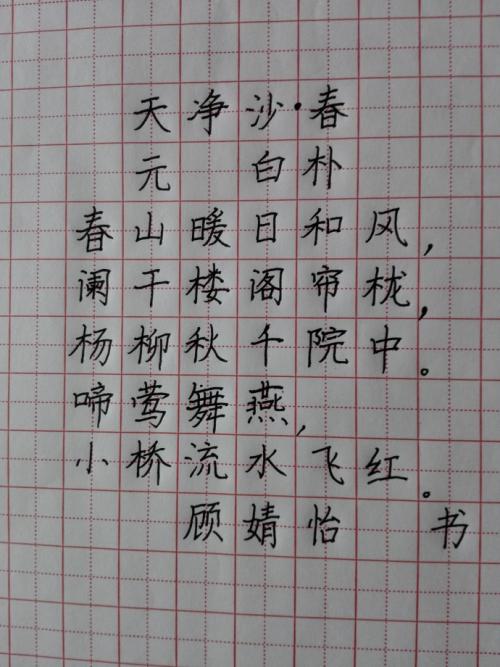 天净沙·春
元 白朴
春山暖日和风，
阑干楼阁帘栊，
杨柳秋千院中。
啼莺舞燕，
小桥流水飞红。
顾婧怡 书